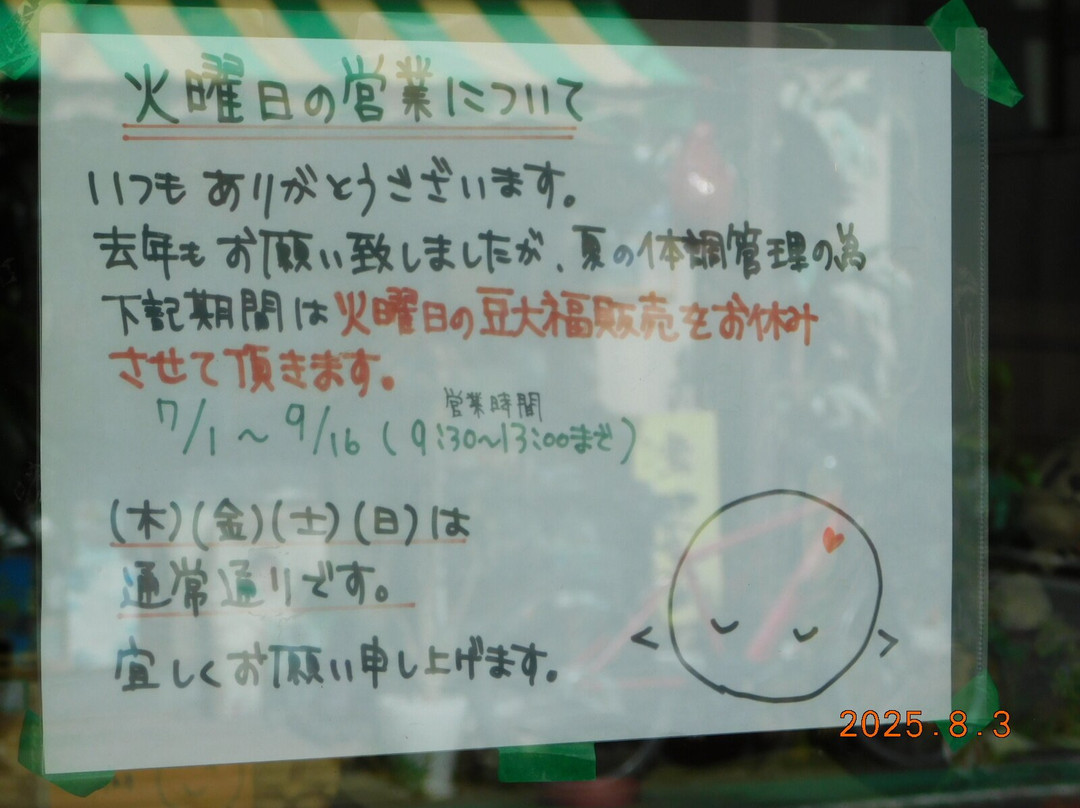 火曜日の営業について
いつもありがとうございます。
去年もお願い致しましたが、夏の体調管理の為
下記期間は火曜日の豆大福販売をお休み
させて頂きます。
営業時間
7/1～9/16(9:30～13:00まで)
(木)(金)(土)(日)は
通常通りです。
宜しくお願い申し上げます。
2025.8.3